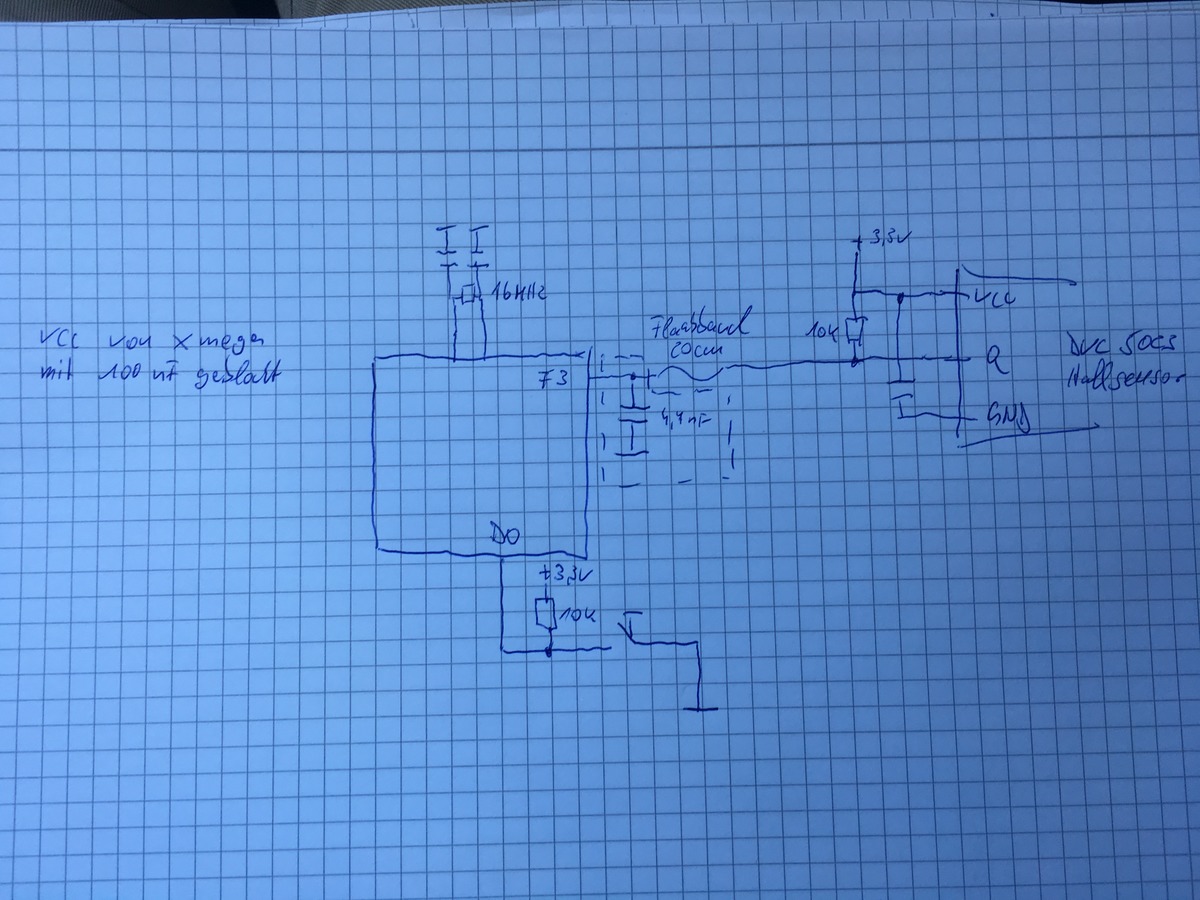 +3,3V
16MHz
VCC
Flachband
20cm
10K
VCC von Xmega
mit 100 nF
Q
F3
Hallsensor
4,7nF
GND
D0
+3,3V
10K